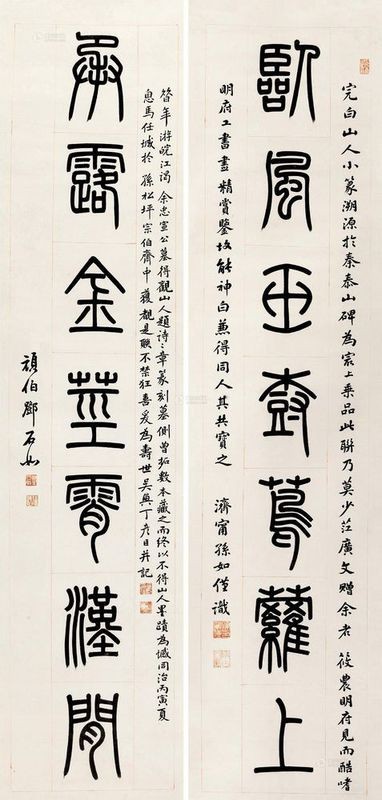 完白山人小篆溯源於秦泰山碑為㝡上乘品此聯乃莫少茳廣文贈余者 筱農明府見而酷嗜
臥風玉樹葛蘿上
明府工書畫精賞鑒故能神合兼得同人其共寶之 濟甯孫如僅識
昔年游皖江謁 余忠宣公墓得觀山人題詩三章篆刻墓側曾拓數本藏之而終以不得山人墨蹟為憾同治丙寅夏
息馬任城於 孫松坪宗伯齋中獲覩是聯不禁狂喜爰為壽世吳興丁彥臣并記
承露金莖霄漢間
頑伯鄧石如